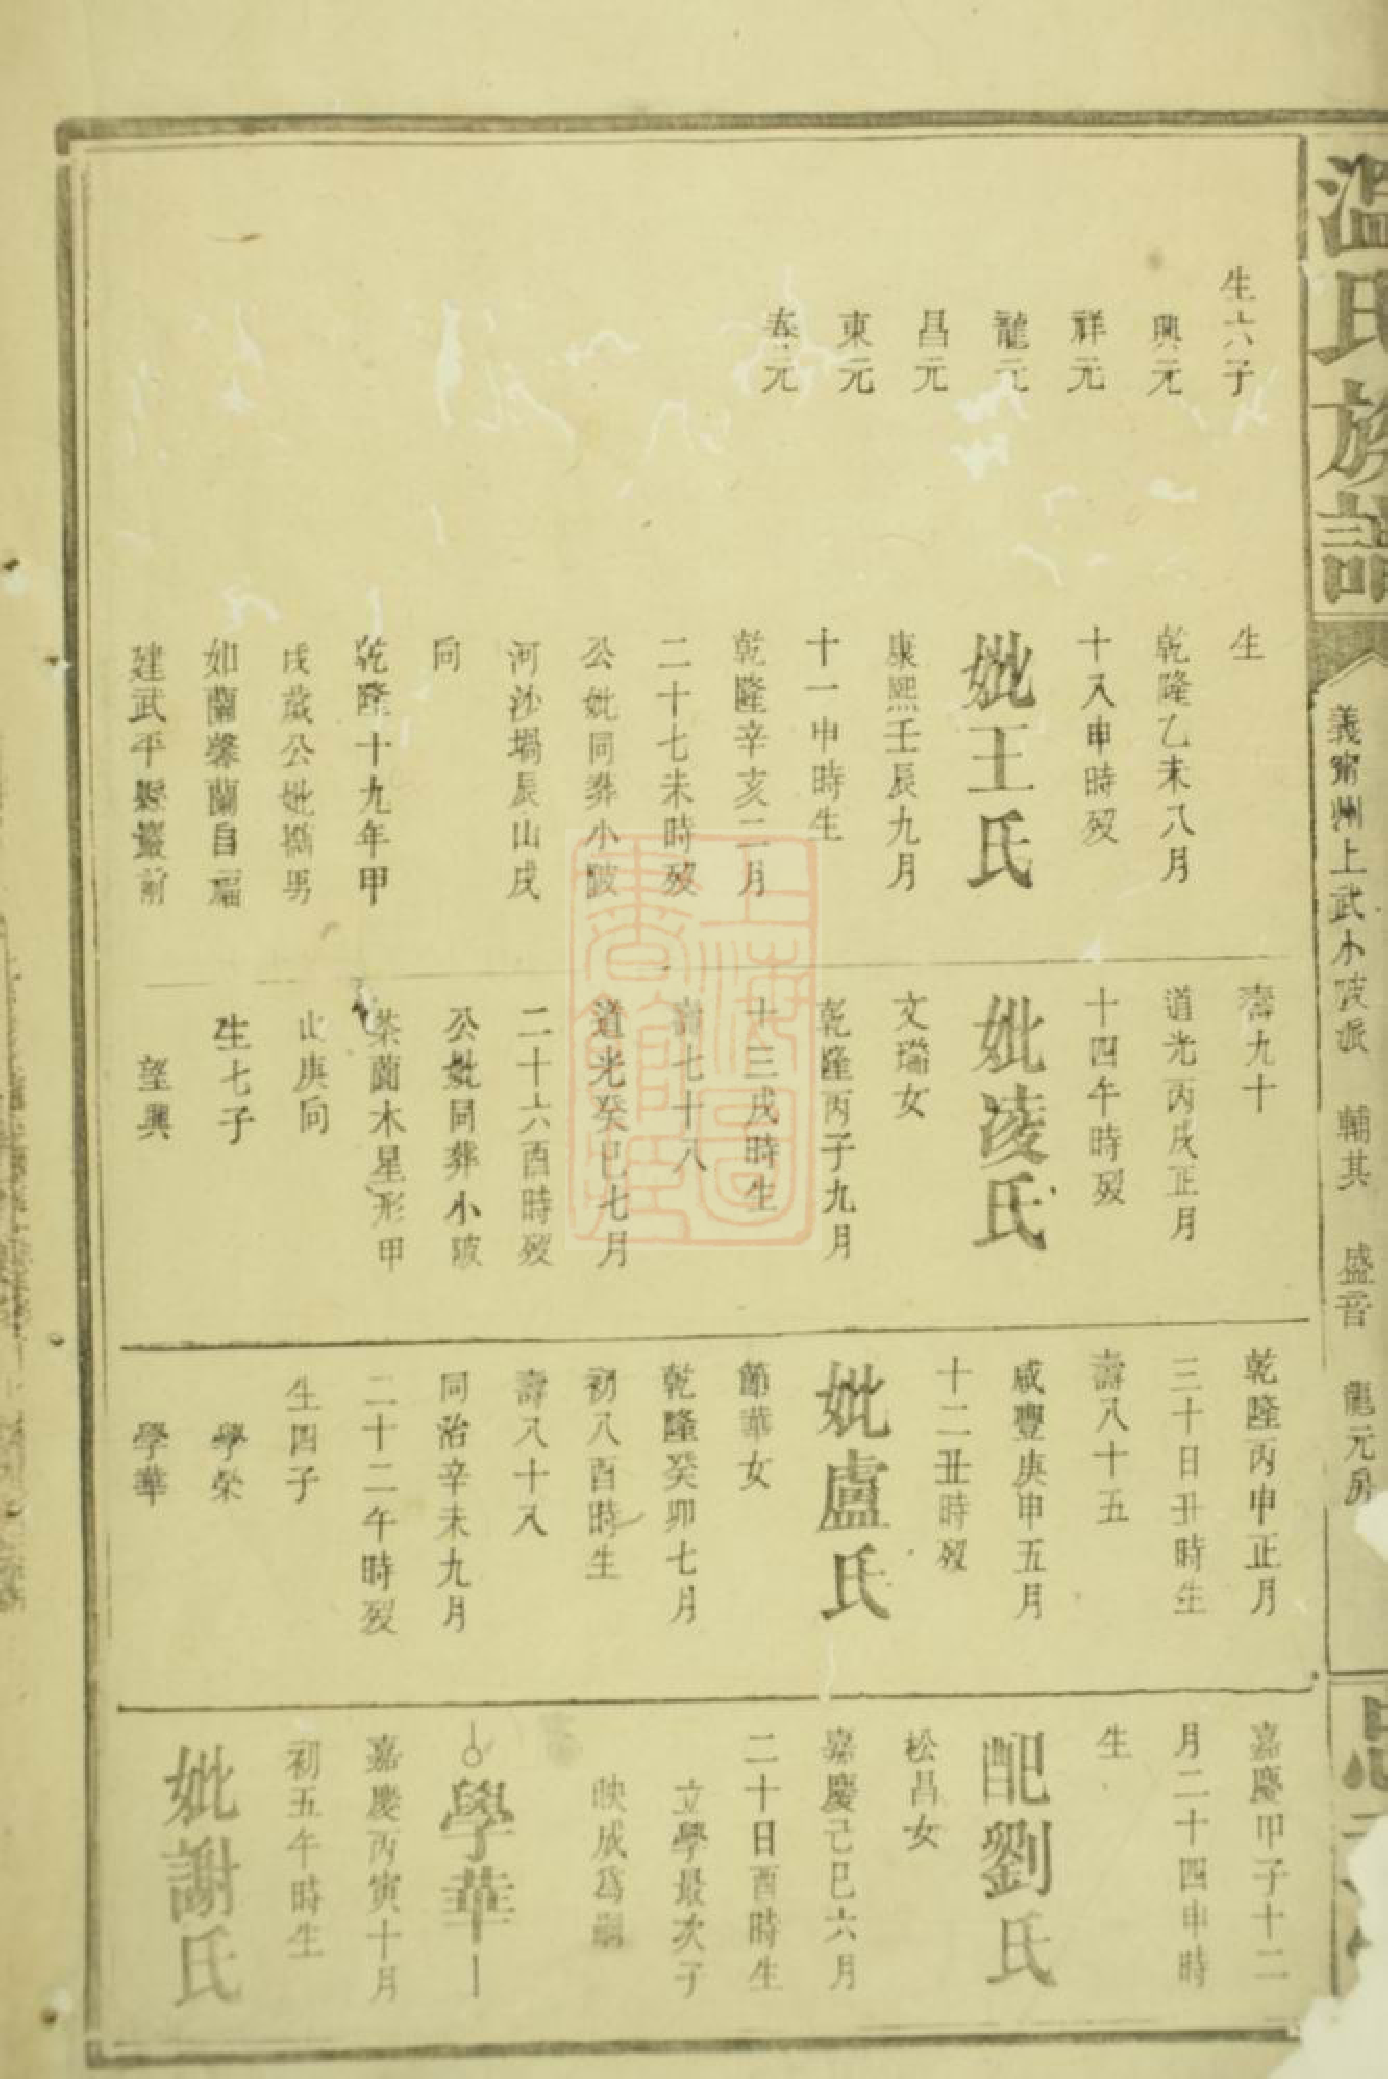 溫氏族譜
義甯州上武小陂派 輔其 盛音 龍元房
生六子
興元
祥元
龍元
昌元
東元
泰元
生
乾隆乙未八月
十八申時歿
妣王氏
康熙壬辰九月
十一申時生
乾隆辛亥二月
二十七未時歿
公妣同葬小陂
河沙塅辰山戌
向
乾隆十九年甲
戌歲公妣攜男
如蘭馨蘭自福
建武平縣巖前
壽九十
道光丙戌正月
十四午時歿
妣凌氏
文瑞女
乾隆丙子九月
十三戌時生
壽七十八
道光癸巳七月
二十六酉時歿
公妣同葬小陂
茶薗木星形甲
山庚向
生七子
望興
乾隆丙申正月
三十日丑時生
壽八十五
咸豐庚申五月
十二丑時歿
妣盧氏
節華女
乾隆癸卯七月
初八酉時生
壽八十八
同治辛未九月
二十二午時歿
生四子
學榮
學華
嘉慶甲子十二
月二十四申時
生
配劉氏
松昌女
嘉慶己巳六月
二十日酉時生
立學最次子
映成爲嗣
學華
嘉慶丙寅十月
初五午時生
妣謝氏
上海圖書館藏